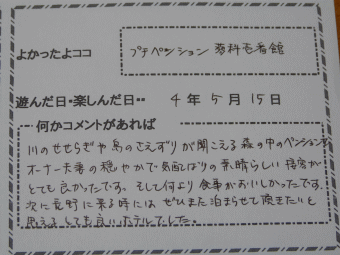 よかったよココ
プチペンション 蓼科壱番館
遊んだ日・楽しんだ日・・ 4年5月15日
何かコメントがあれば
川のせせらぎや鳥のさえずりが聞こえる森の中のペンションで
オーナー夫妻の穏やかで気配ばりの素晴らしい接客が
とても良かったです。そして何より食事がおいしかったです。
次に長野に来る時にはぜひまた泊まらせて頂きたいと
思えるとても良いホテルでした。